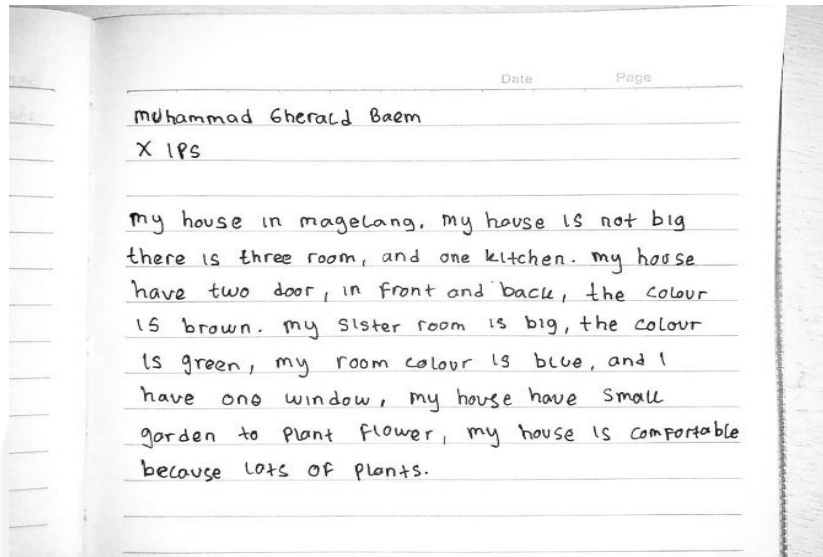 Date Page
muhammad Gherald Baem
X IPS
my house in magelang. my house is not big
there is three room, and one kitchen. my house
have two door, in front and back, the colour
is brown. my sister room is big, the colour
is green, my room colour is blue, and I
have one window, my house have small
garden to plant flower, my house is comfortable
because lots of plants.